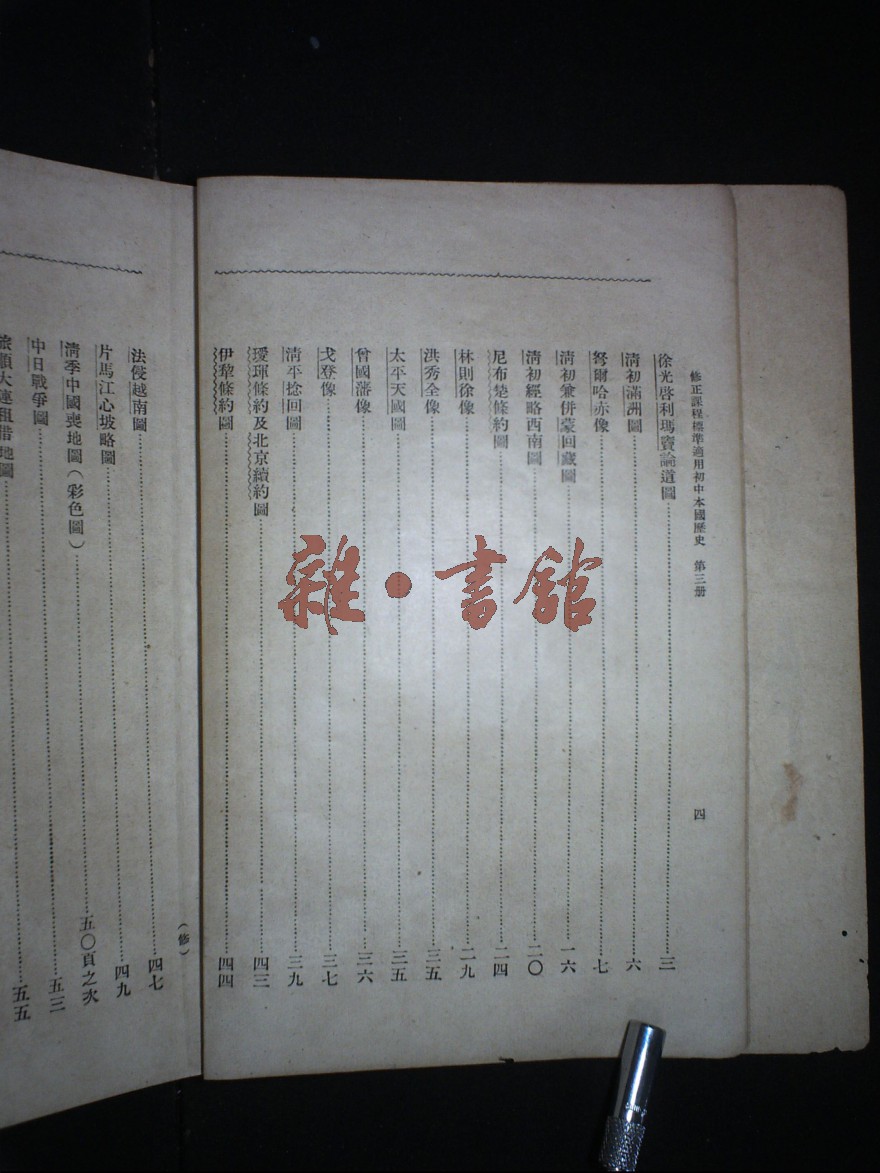 修正課程標準適用初中本國歷史　第三册　四
徐光啓利瑪竇論道圖……三
清初滿洲圖……六
弩爾哈赤像……七
清初兼併蒙回藏圖……一六
清初經略西南圖……二〇
尼布楚條約圖……二四
林則徐像……二九
洪秀全像……三五
太平天國圖……三五
曾國藩像……三六
戈登像……三七
清平捻回圖……三九
璦琿條約及北京續約圖……四三
伊犂條約圖……四四
（修）
法侵越南圖……四七
片馬江心坡略圖……四九
清季中國喪地圖（彩色圖）……五〇頁之次
中日戰爭圖……五三
旅順大連租借地圖……五五
雜·書館